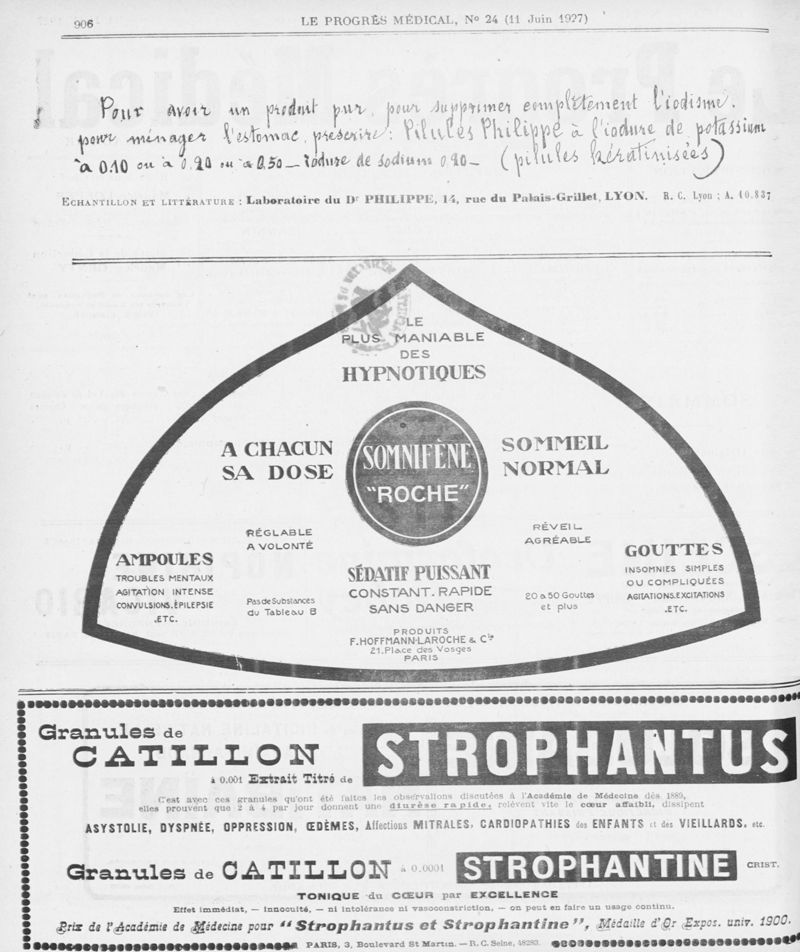 906
LE PROGRÈS MÉDICAL, No 24 (11 Juin 1927)
Pour avoir un produit pur, pour supprimer complètement l'iodisme,
pour ménager l'estomac, prescrire: Pilules Philippe à l'iodure de potassium
à 0.10 ou à 0.20 ou à 0.50 — Iodure de sodium 0.20 — (pilules kératinisées)
ECHANTILLON ET LITTÉRATURE : Laboratoire du Dr PHILIPPE, 14, rue du Palais-Grillet, LYON. R. C. Lyon ; A. 10.837
LE
PLUS MANIABLE
DES
HYPNOTIQUES
A CHACUN
SA DOSE
SOMNIFÈNE
"ROCHE"
SOMMEIL
NORMAL
RÉGLABLE
A VOLONTÉ
RÉVEIL
AGRÉABLE
AMPOULES
TROUBLES MENTAUX
AGITATION INTENSE
CONVULSIONS, ÉPILEPSIE
.ETC.
Pas de Substances
du Tableau B
SÉDATIF PUISSANT
CONSTANT. RAPIDE
SANS DANGER
20 a 50 Gouttes
et plus
GOUTTES
INSOMNIES SIMPLES
OU COMPLIQUÉES
AGITATIONS.EXCITATIONS
.ETC.
PRODUITS
F.HOFFMANN-LAROCHE & Cie
21.Place des Vosges
PARIS
Granules de
CATILLON
à 0.001 Extrait Titré de
STROPHANTUS
C'est avec ces granules qu'ont été faites les observations discutées à l'Académie de Médecine dès 1889,
elles prouvent que 2 à 4 par jour donnent une diurèse rapide, relèvent vite le cœur affaibli, dissipent
ASYSTOLIE, DYSPNÉE, OPPRESSION, ŒDÈMES, Affections MITRALES, CARDIOPATHIES des ENFANTS et des VIEILLARDS, etc.
Granules de CATILLON à 0.0001 STROPHANTINE CRIST.
TONIQUE du CŒUR par EXCELLENCE
Effet immédiat, — innocuité, — ni intolérance ni vasoconstriction, — on peut en faire un usage continu.
Prix de l'Académie de Médecine pour "Strophantus et Strophantine", Médaille d'Or Expos. univ. 1900.
PARIS, 3, Boulevard St Martin. — R. C. Seine, 48283.